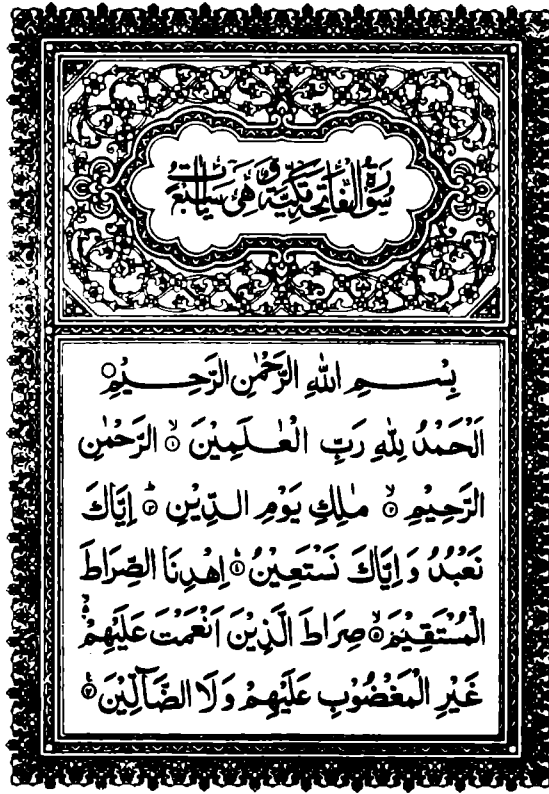 سُوْرَةُ الْفَاتِحَةِ مَكِّيَّةٌ وَّهِيَ سَبْعُ اٰيَاتٍ
بِسْمِ اللهِ الرَّحْمٰنِ الرَّحِيْمِ ○
اَلْحَمْدُ لِلّٰهِ رَبِّ الْعٰلَمِيْنَ ۙ﴿١﴾ الرَّحْمٰنِ
الرَّحِيْمِ ۙ﴿٢﴾ مٰلِكِ يَوْمِ الدِّيْنِ ؕ﴿٣﴾ اِيَّاكَ
نَعْبُدُ وَ اِيَّاكَ نَسْتَعِيْنُ ؕ﴿٤﴾ اِهْدِنَا الصِّرَاطَ
الْمُسْتَقِيْمَ ۙ﴿٥﴾ صِرَاطَ الَّذِيْنَ اَنْعَمْتَ عَلَيْهِمْ ۙ۬
غَيْرِ الْمَغْضُوْبِ عَلَيْهِمْ وَ لَا الضَّآلِّيْنَ ﴿٧﴾